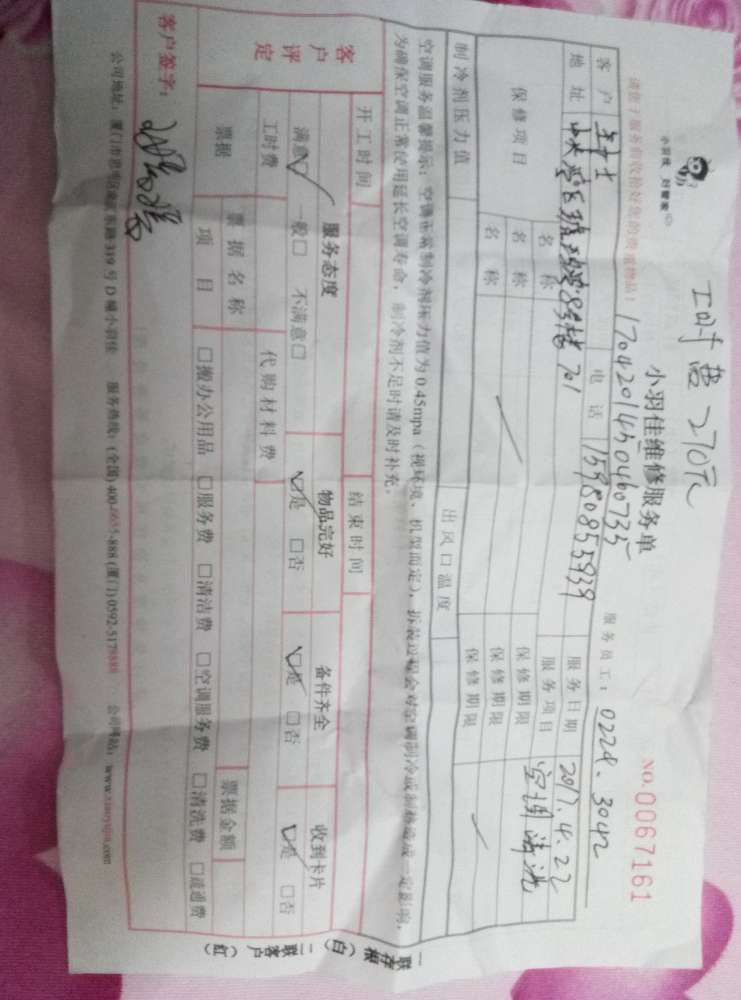 工时费270元
小羽佳 好管家
小羽佳维修服务单
NO.0067161
请您于服务前收拾好您的贵重物品！
17042014504607335
服务员工：0224、3042
客户 女士 电话 15980855939 服务日期 2017.4.22
地址 8号楼701 服务项目 空调清洗
保修项目 名称 保修期限
名称 保修期限
名称 保修期限
制冷剂压力值 出风口温度
空调服务温馨提示：空调正常制冷剂压力值为0.45mpa（视环境、机型而定），拆装过程会对空调制冷或制热造成一定影响，
为确保空调正常使用延长空调寿命，制冷剂不足时请及时补充。
开工时间 结束时间
客户评定 服务态度 物品完好 备件齐全 收到卡片
满意☑ 一般□ 不满意□ ☑是 □否 ☑是 □否 ☑是 □否
工时费 代购材料费
票据 票据名称 票据金额
项目 □搬办公用品 □服务费 □清洁费 □空调服务费 □清洗费 □疏通费
客户签字：
公司地址：厦门市思明区 319号D幢小羽佳 服务热线：(全国)400 -888 (厦门)0592-517 公司网站：www.xiaoyujia.com
一联存根（白） 二联客户（红）